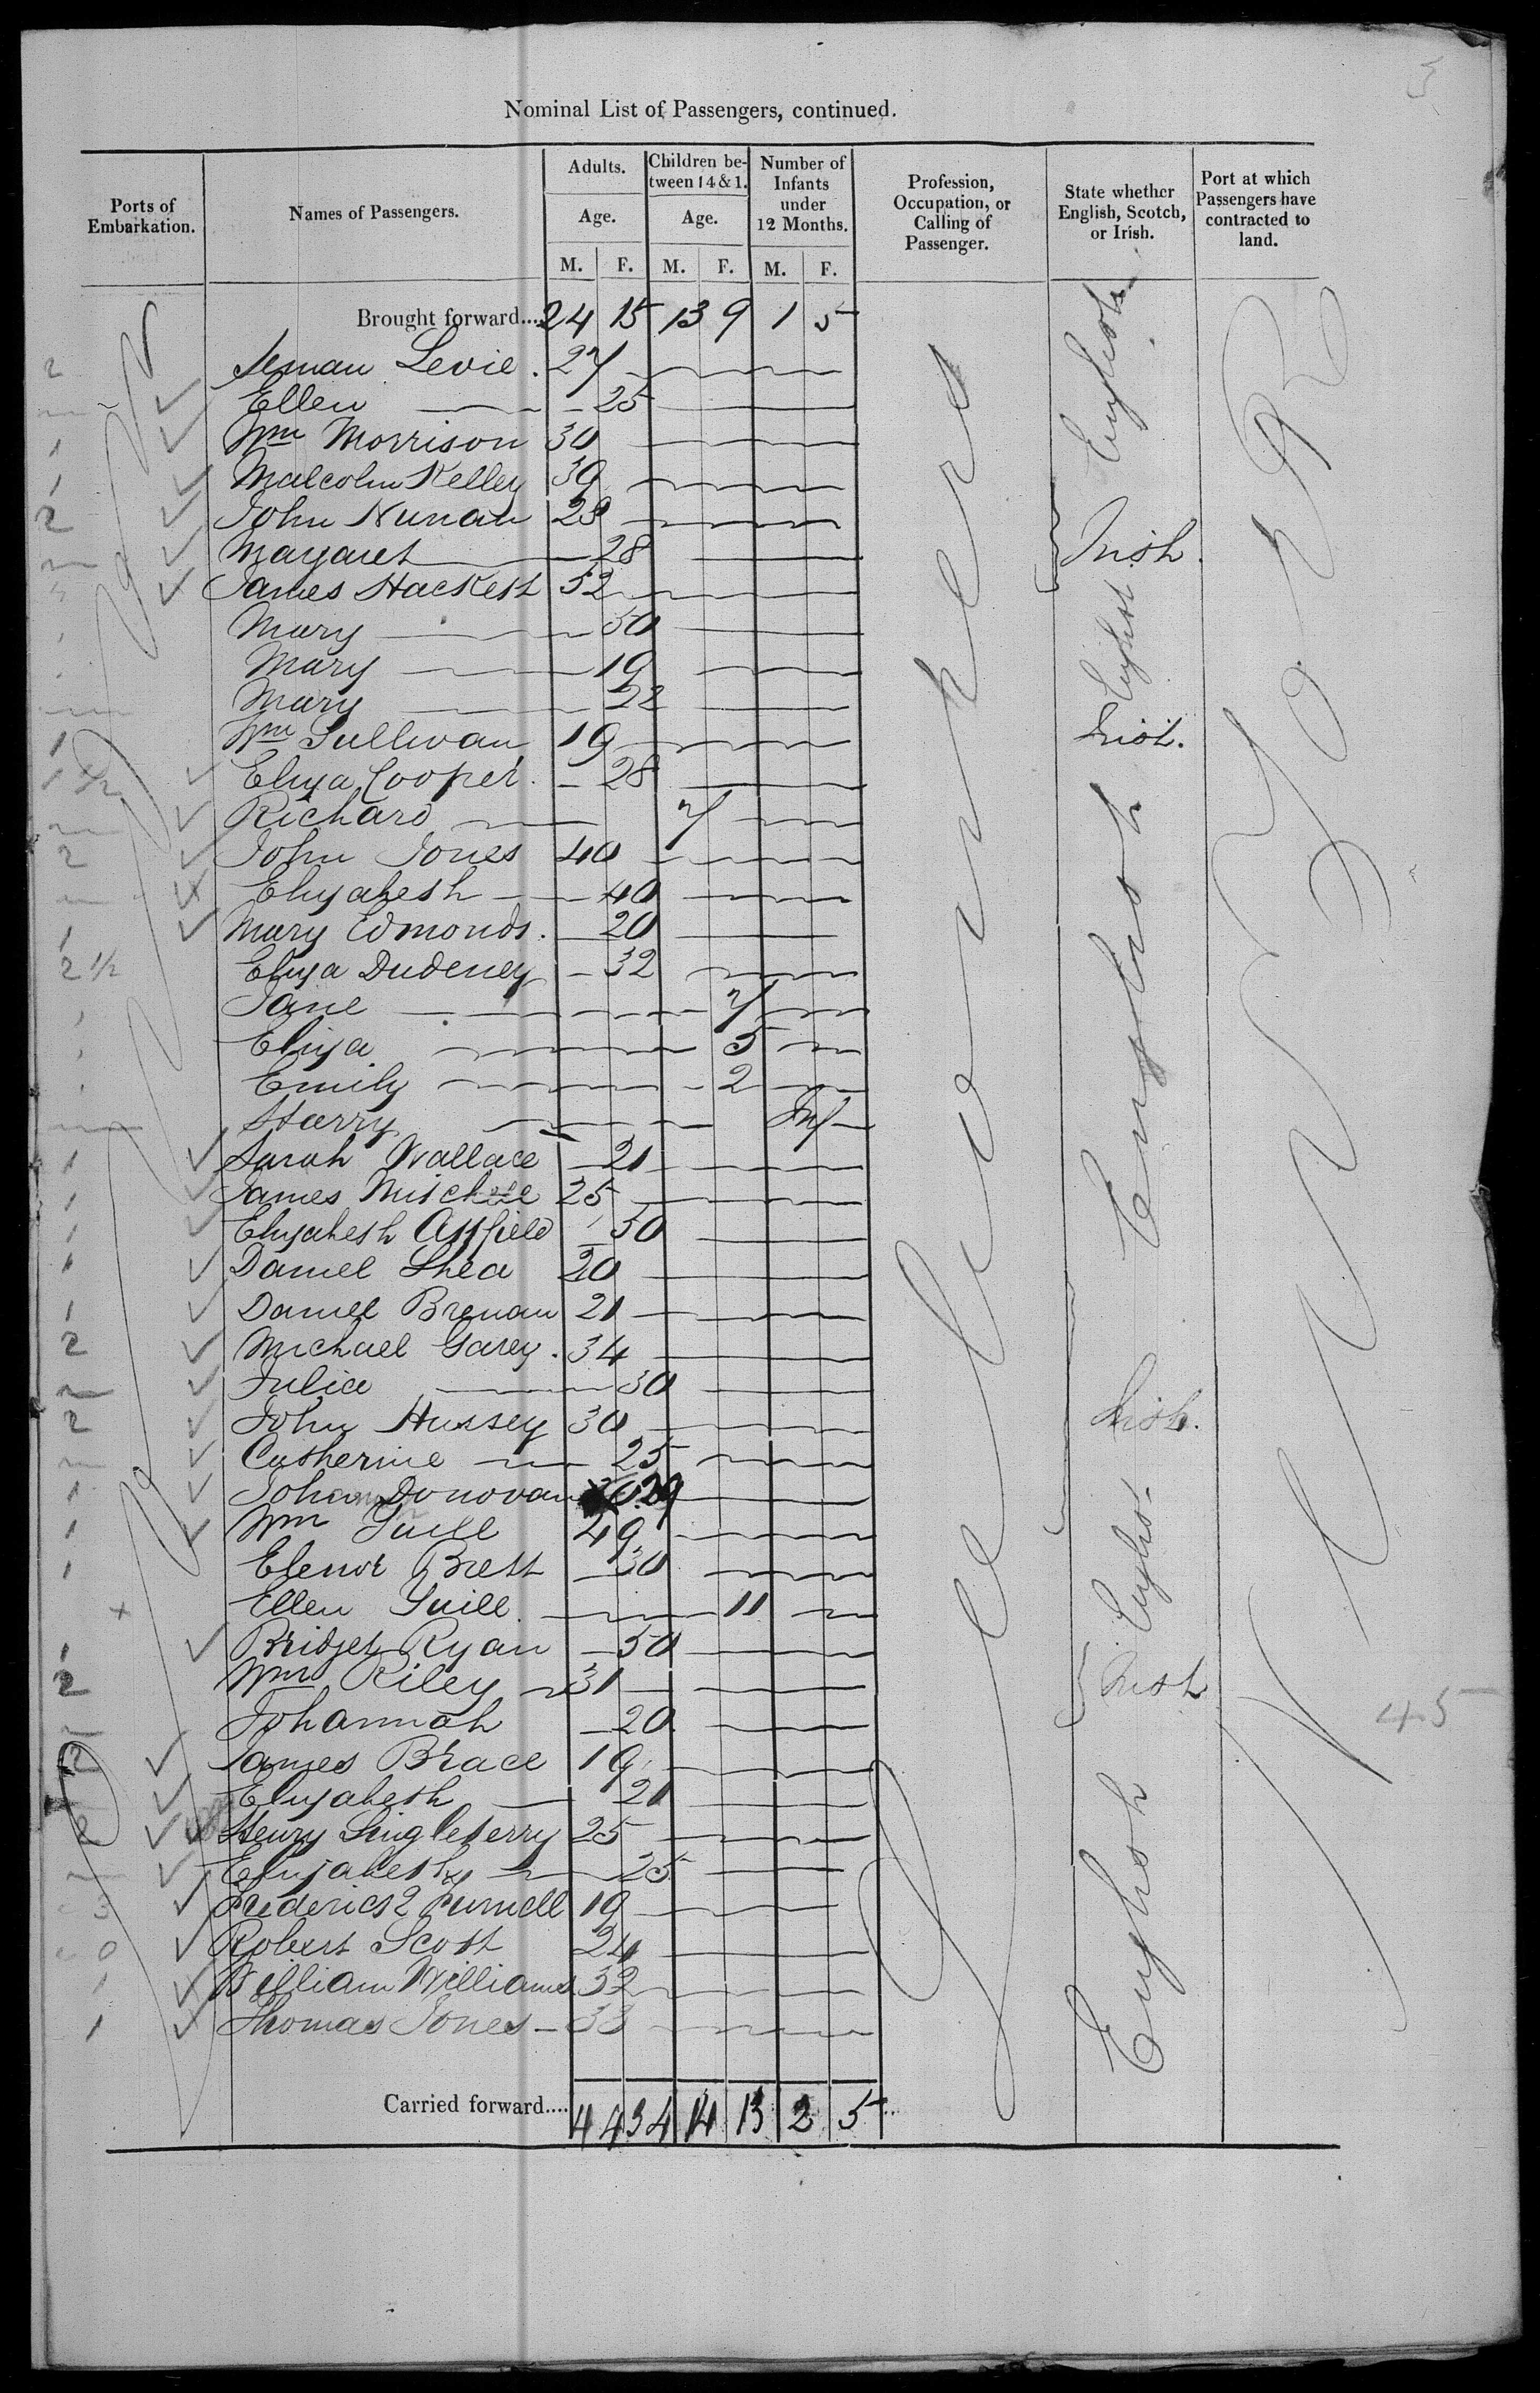 Nominal List of Passengers, continued.
Ports of Embarkation. Names of Passengers. Adults. Age. M. F. Children between 14 & 1. Age. M. F. Number of Infants under 12 Months. M. F. Profession, Occupation, or Calling of Passenger. State whether English, Scotch, or Irish. Port at which Passengers have contracted to land.
Brought forward.... 24 15 13 9 1 5
2 Levie. 27
Ellen 25 English
1 Wm Morrison 30
1 Malcolm Kelley 39
2 John Nunan 29
Margaret 28 Irish.
James Hackett 52
Mary 50
Mary 19 English
Mary 22
1 Wm Sullivan 19 Irish.
1 1/2 Eliza Cooper. 28
Richard 7
2 John Jones 40
Elizabeth 40
1 Mary Edmonds. 20
2 1/2 Eliza Dudeney 32
Jane 7
Eliza 5 English
Emily 2
Harry Inf
1 Sarah Wallace 21
1 James Mitchell 25
1 Elizabeth 30
1 Daniel Shea 20
1 Daniel Brenan 21
2 Michael Garey. 34
Julia 30
2 John Hussey 30 Irish.
Catherine 25
1 Donovan 29
1 Wm 49
1 Elenor Brett 30 English
Ellen 11
1 Bridget Ryan 50
2 Wm Riley 31 Irish
Johannah 20
45
2 James Brace 19
Elizabeth 21
2 Henry Singleberry 25
Elizabeth 25 English
3 Frederick Purnell 19
0 Robert Scott 24
1 William Williams 32
1 Thomas Jones 33
Carried forward.... 44 34 14 13 2 5
New York